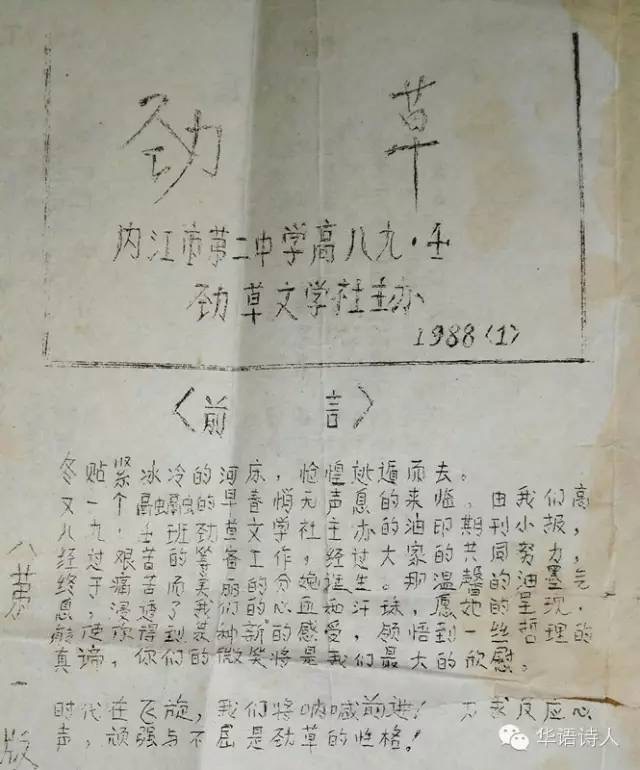 劲 草
内江市第二中学高八九·壬
劲草文学社主办
1988〈1〉
〈前 言〉
冬贴紧冰冷的河床，怆惶逃遁而去。
又一个融融的早春悄无声息的来临，由我们高
八九·壬班的劲草文学社主办的油印期刊小报，
经过艰苦的筹备工作，经过大家的共同努力，
终于痛苦而美丽的分娩诞生。那温馨的油墨气
息，浸透了我们的心血和汗珠，愿她的呈现，
能使你得到某种新的感受，领悟到一丝哲理的
真谛，你们的微笑将是我们最大的欣慰。
时代在飞旋，我们将呐喊前进！为我反应心
声，顽强与不屈是劲草的性格！
第一版
华语诗人